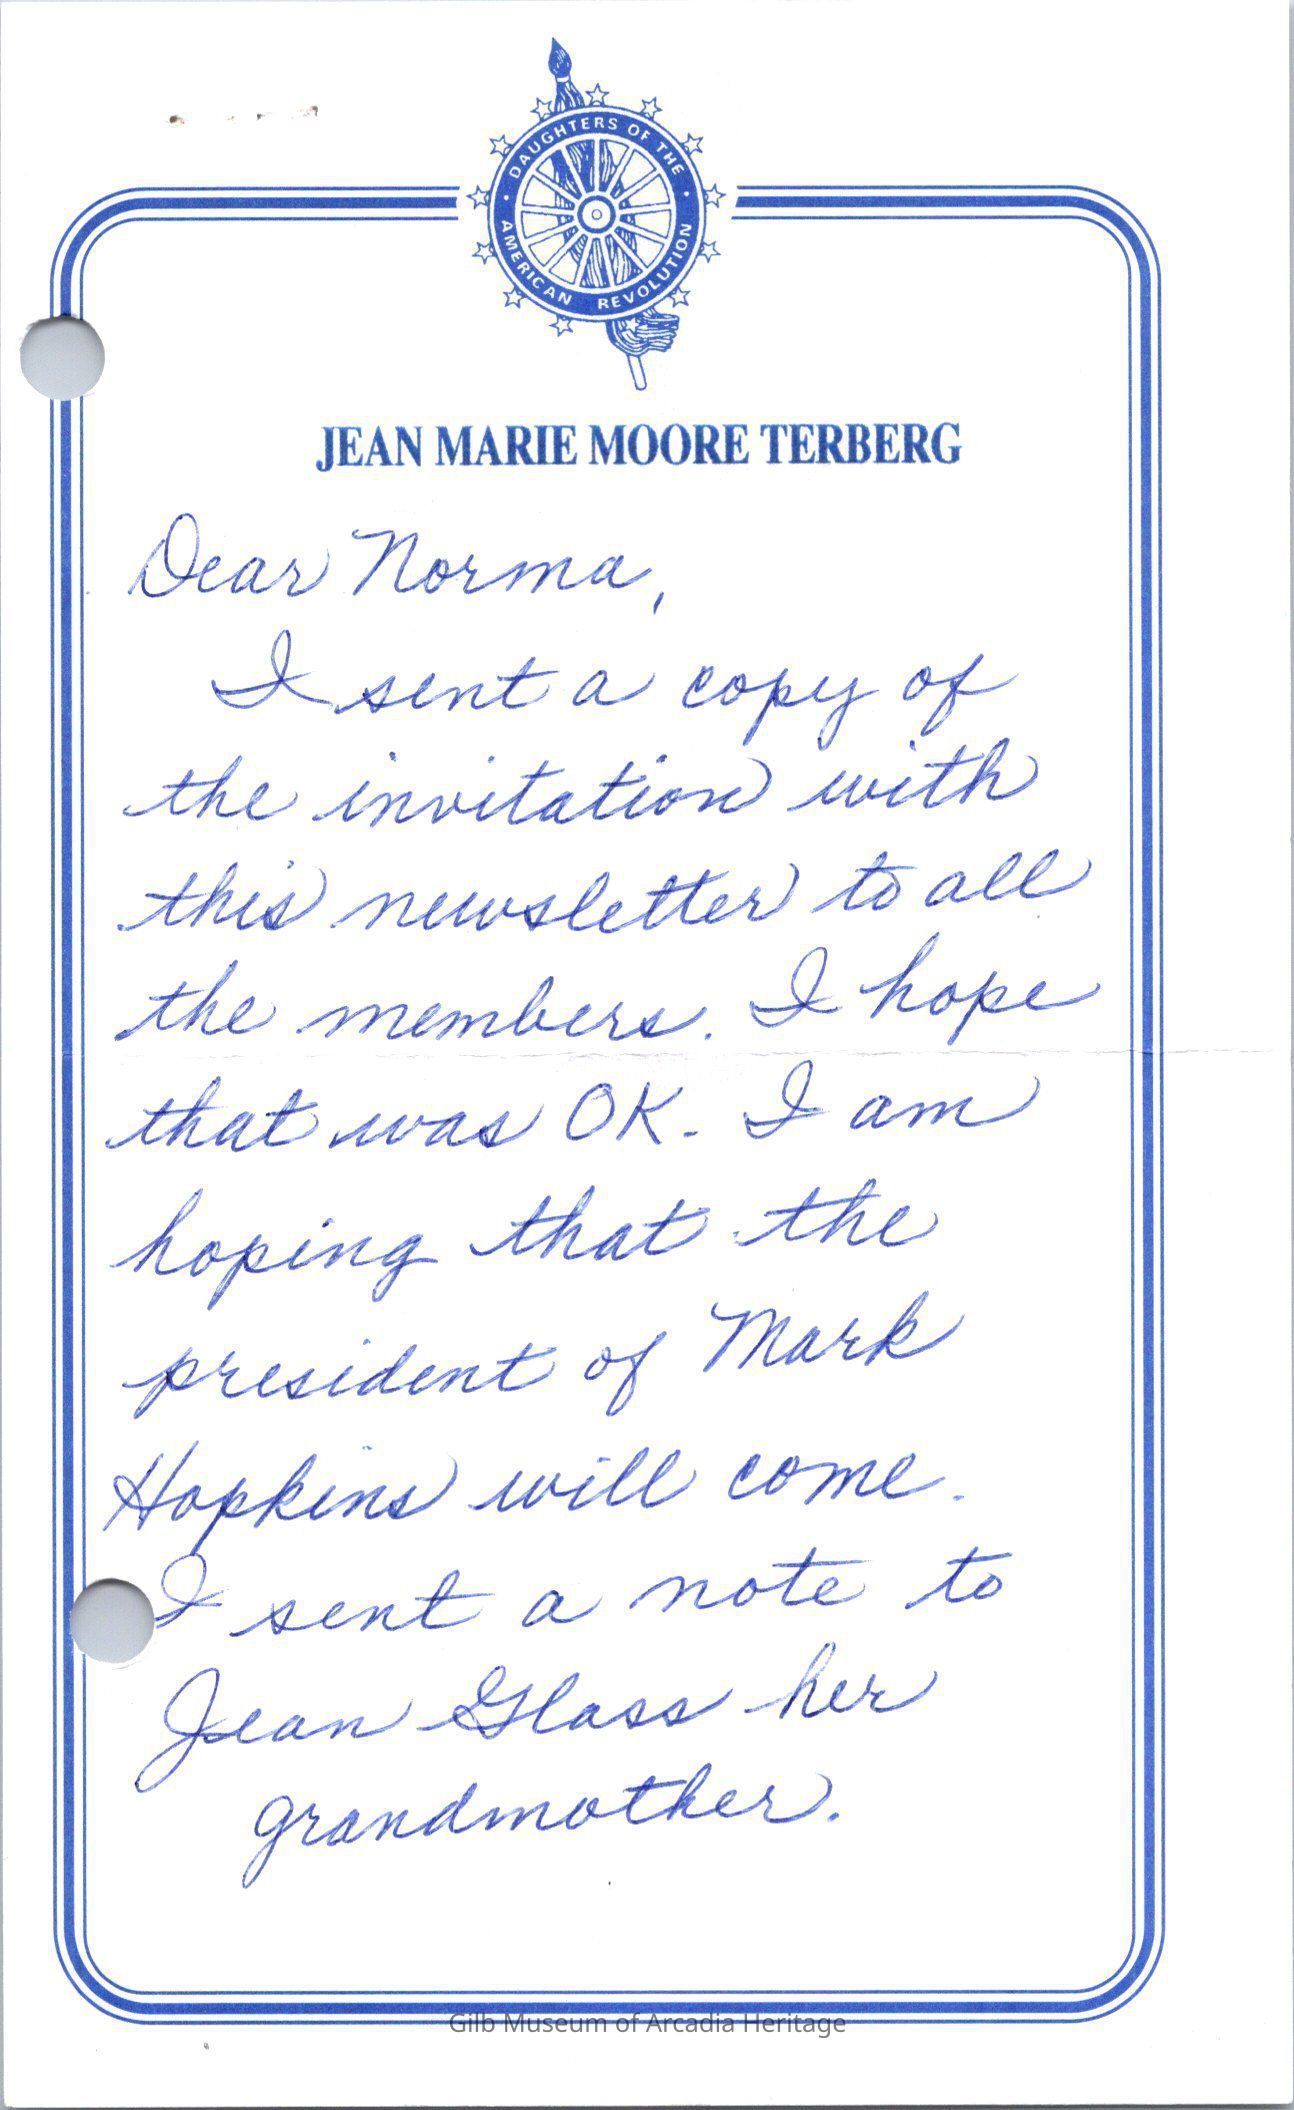 DAUGHTERS OF THE
AMERICAN REVOLUTION
JEAN MARIE MOORE TERBERG
Dear Norma,
I sent a copy of
the invitation with
this newsletter to all
the members. I hope
that was OK. I am
hoping that the
president of Mark
Hopkins will come.
I sent a note to
Jean Glass her
grandmother.
Gilb Museum of Arcadia Heritage